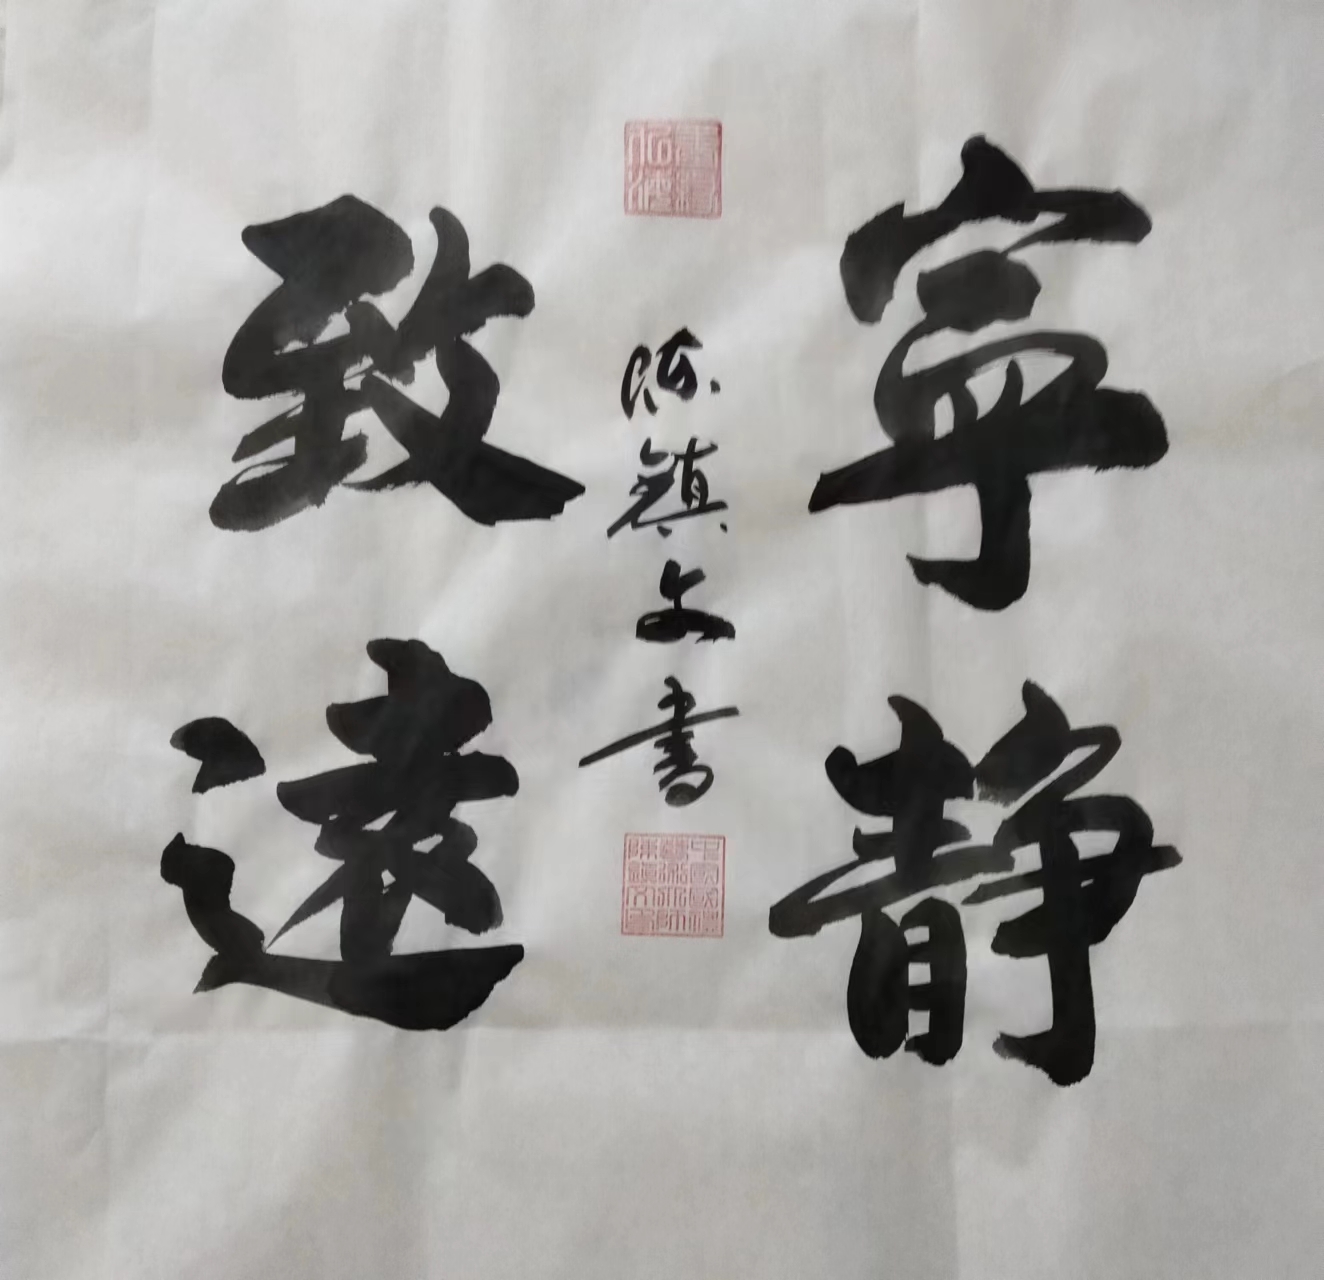 寧靜
致遠
陈镇文書